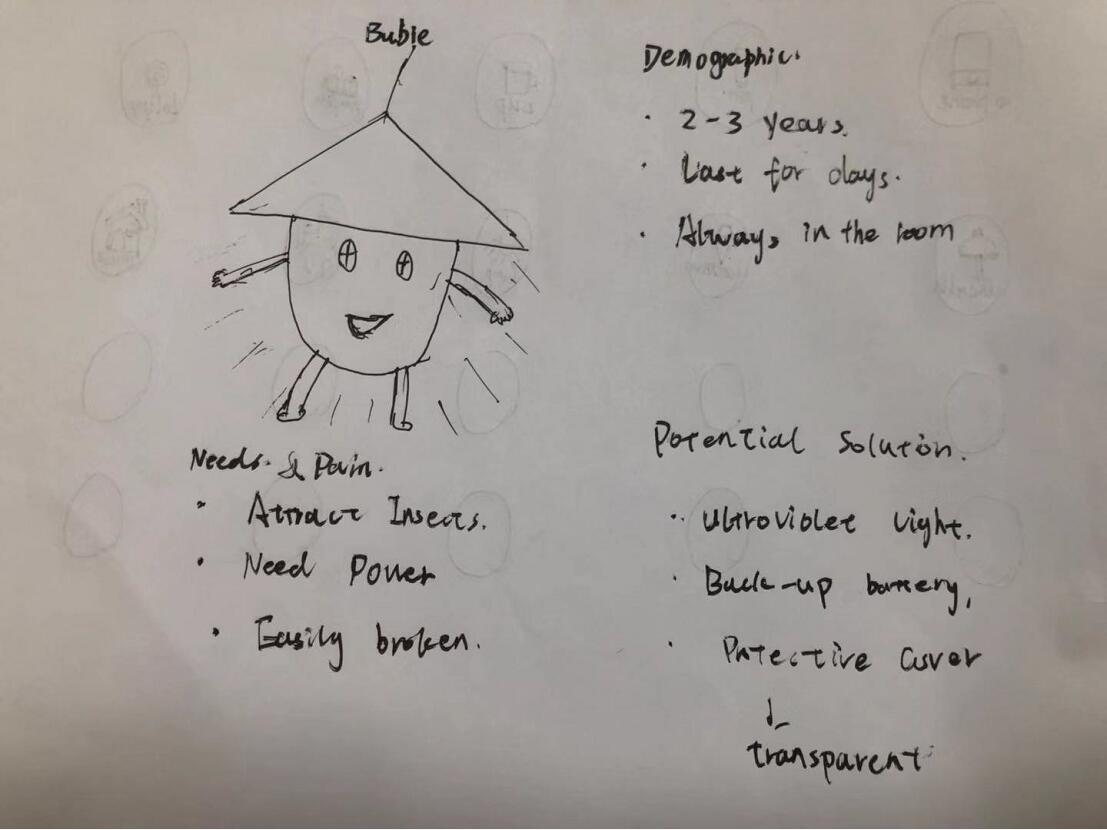 Bubie
Demographic.
· 2-3 years.
· Last for days.
· Always in the room
Needs. & Pain.
· Attract Insects.
· Need Power
· Easily broken.
Potential Solution.
· Ultroviolet light.
· Back-up battery,
· Protective Cover
↓
transparent